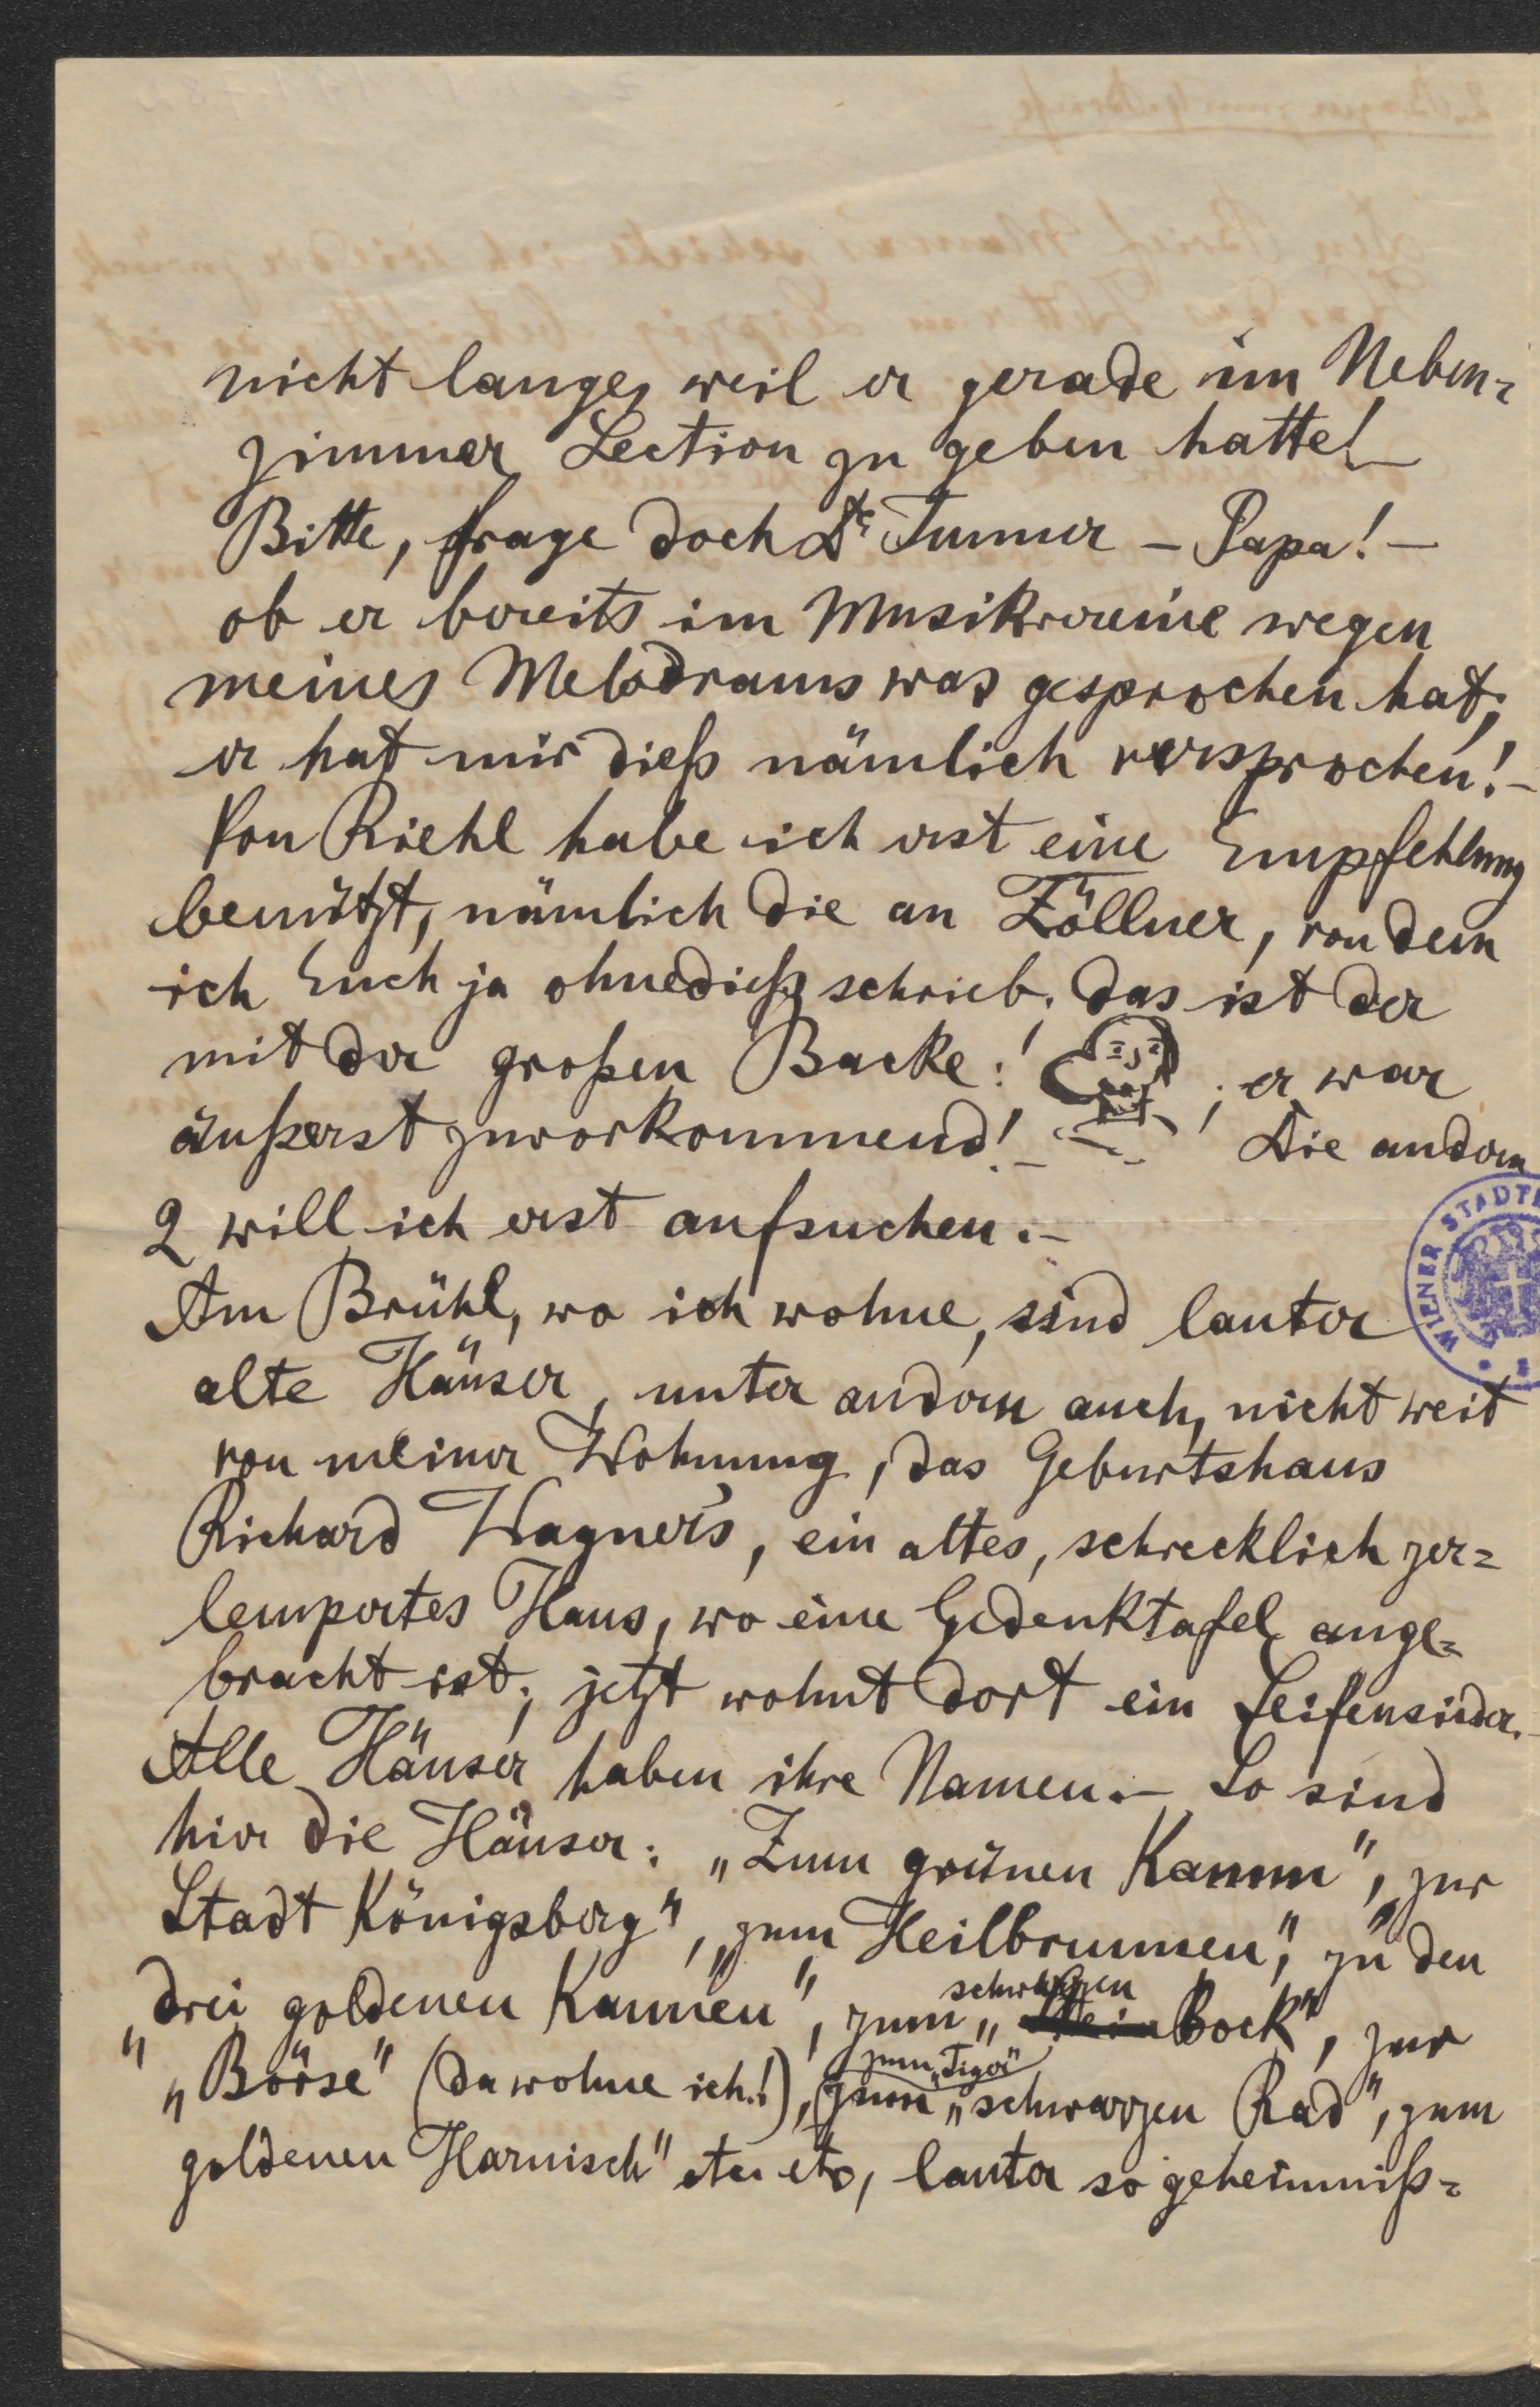 nicht lange, weil er gerade im Neben=
zimmer Lection zu geben hatte!—
Bitte, frage doch Dr Tunner – Papa! –
ob er bereits im Musikvereine wegen
meines Melodrams was gesprochen hat;
er hat mir dieß nämlich versprochen! –
Von Riehl habe ich erst eine Empfehlung
benützt, nämlich die an Zöllner, von dem
ich Euch ja ohnedieß schrieb. Das ist der
mit der großen Backe! ; er war
äußerst zuvorkommend! – Die andern
2 will ich erst aufsuchen. –
Am Brühl, wo ich wohne, sind lauter
alte Häuser, unter andern auch, nicht weit
von meiner Wohnung, das Geburtshaus
Richard Wagner's, ein altes, schrecklich zer=
lempertes Haus, wo eine Gedenktafel ange=
bracht ist; jetzt wohnt dort ein Seifensieder. –
Alle Häuser haben ihre Namen. – So sind
hier die Häuser: „Zum grünen Kamm", „zur
Stadt Königsberg", „zum Heilbrunnen", zu den
„drei goldenen Kannen", zum „schwarzen Bock", zur
„Börse" (da wohne ich!), zum „Tiger" zum „schwarzen Rad", „zum
goldenen Harnisch" etc etc, lauter so geheimniß=
WIENER STADT